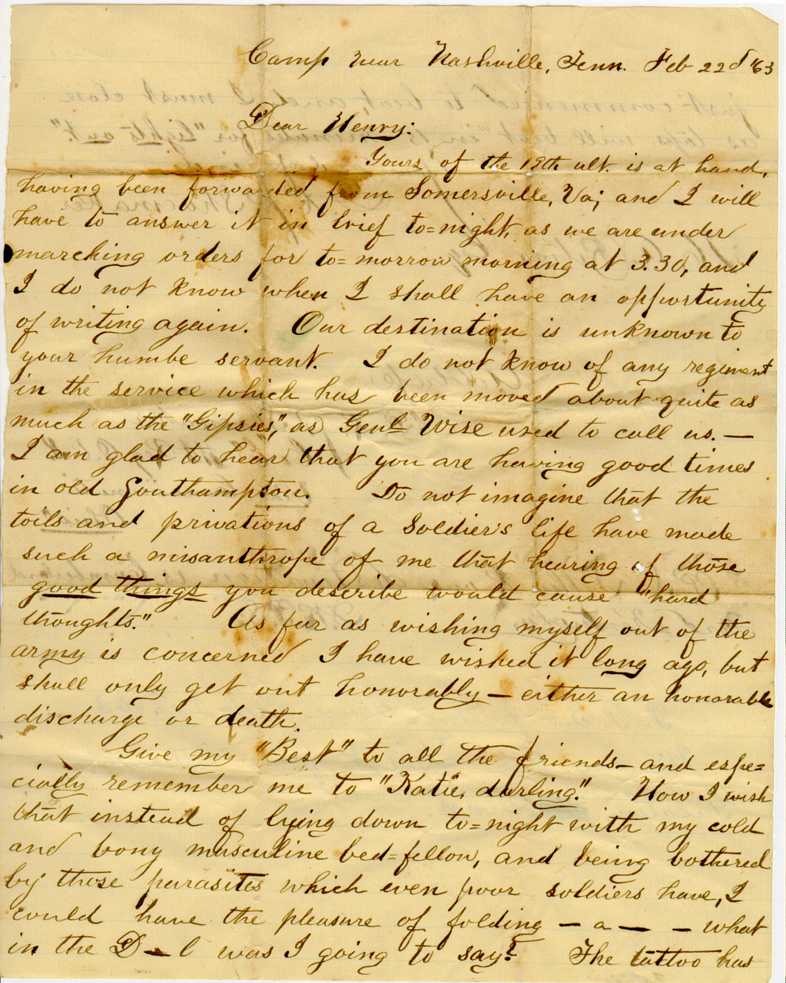 Camp near Nashville, Tenn. Feb 22d '63
Dear Henry:
Yours of the 19th ult. is at hand,
having been forwarded from Somersville, Va; and I will
have to answer it in brief to=night, as we are under
marching orders for to=morrow morning at 3.30, and
I do not know when I shall have an opportunity
of writing again. Our destination is unknown to
your humbe servant. I do not know of any regiment
in the service which has been moved about quite as
much as the "Gipsies", as Genl Wise used to call us. —
I am glad to hear that you are having good times
in old Southampton. Do not imagine that the
toils and privations of a Soldier's life have made
such a misanthrope of me that hearing of those
good things you describe would cause "hard
thoughts." As far as wishing myself out of the
army is concerned I have wished it long ago, but
shall only get out honorably — either an honorable
discharge or death.
Give my "Best" to all the friends — and espe=
cially remember me to "Katie, darling." How I wish
that instead of lying down to=night with my cold
and bony masculine bed=fellow, and being bothered
by those parasites which even poor soldiers have, I
could have the pleasure of folding — a — — what
in the D—l was I going to say? The tattoo has